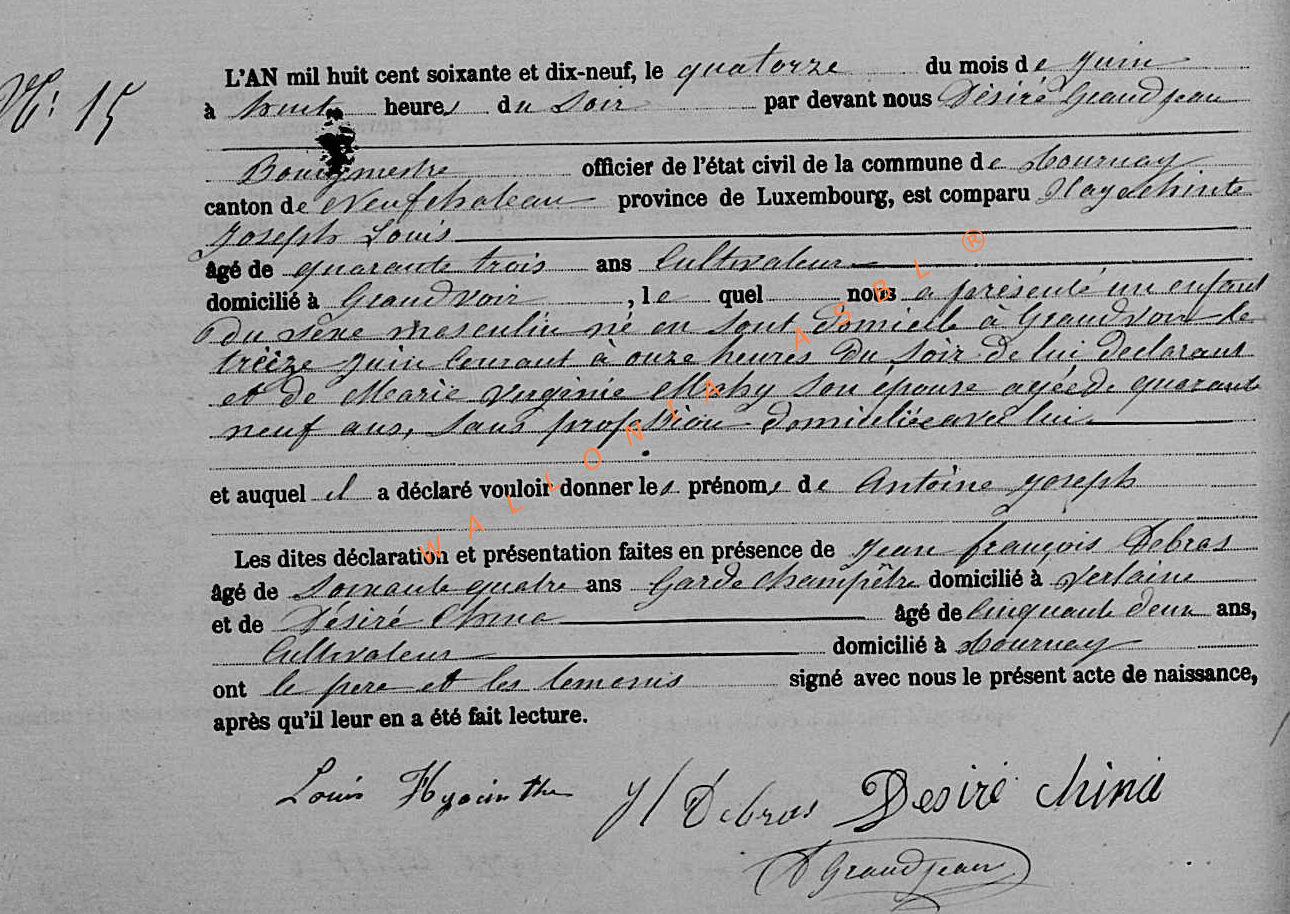 N: 15
L'AN mil huit cent soixante et dix-neuf, le quatorze du mois de Juin
à huit heures du Soir par devant nous Désiré Grandjean
Bourgmestre officier de l'état civil de la commune de Tournay
canton de Neufchateau province de Luxembourg, est comparu Hayachinte
Joseph Louis
âgé de quarante trois ans Cultivateur
domicilié à Grandvoir, le quel nous a présenté un enfant
du sexe masculin né en sont domicile à Grandvoir le
treize Juin Courant à onze heures du Soir de lui declarant
et de Marie Virginie Mahy son épouse agée de quarante
neuf ans, Sans profession domiciliée avec lui
et auquel il a déclaré vouloir donner les prénoms de Antoine Joseph
Les dites déclaration et présentation faites en présence de Jean françois Debras
âgé de Soixante quatre ans Garde Champêtre domicilié à Verlaine
et de Désiré China âgé de Cinquante deux ans,
Cultivateur domicilié à Tournay
ont le pere et les temoins signé avec nous le présent acte de naissance,
après qu'il leur en a été fait lecture.
Louis Hyacinthe J f Debras Desiré China
D Grandjean
WALLONIA ASBL ®